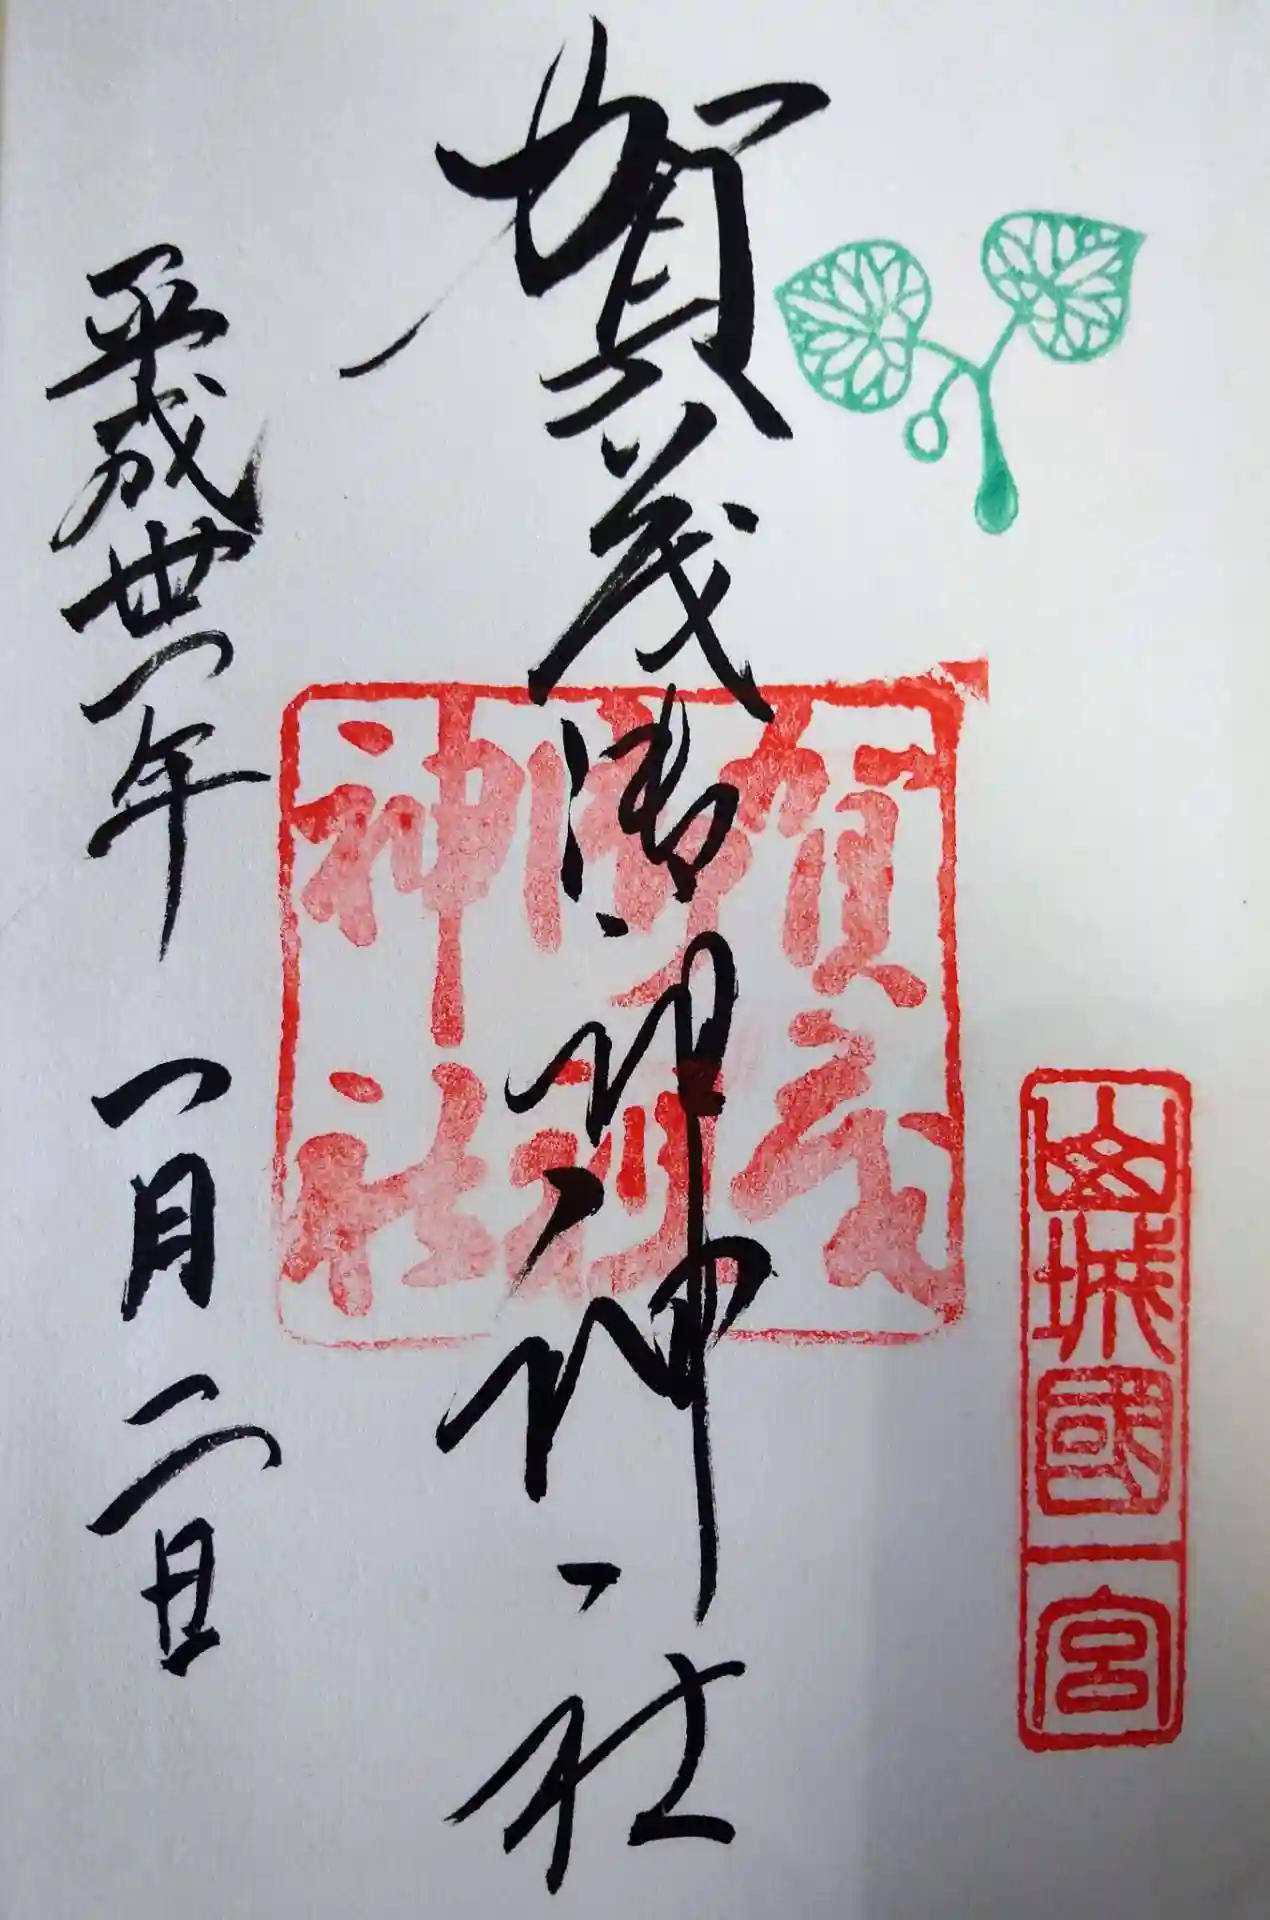 山城國一宮
賀茂御祖神社
賀茂
御祖
神社
平成丗一年 一月二日